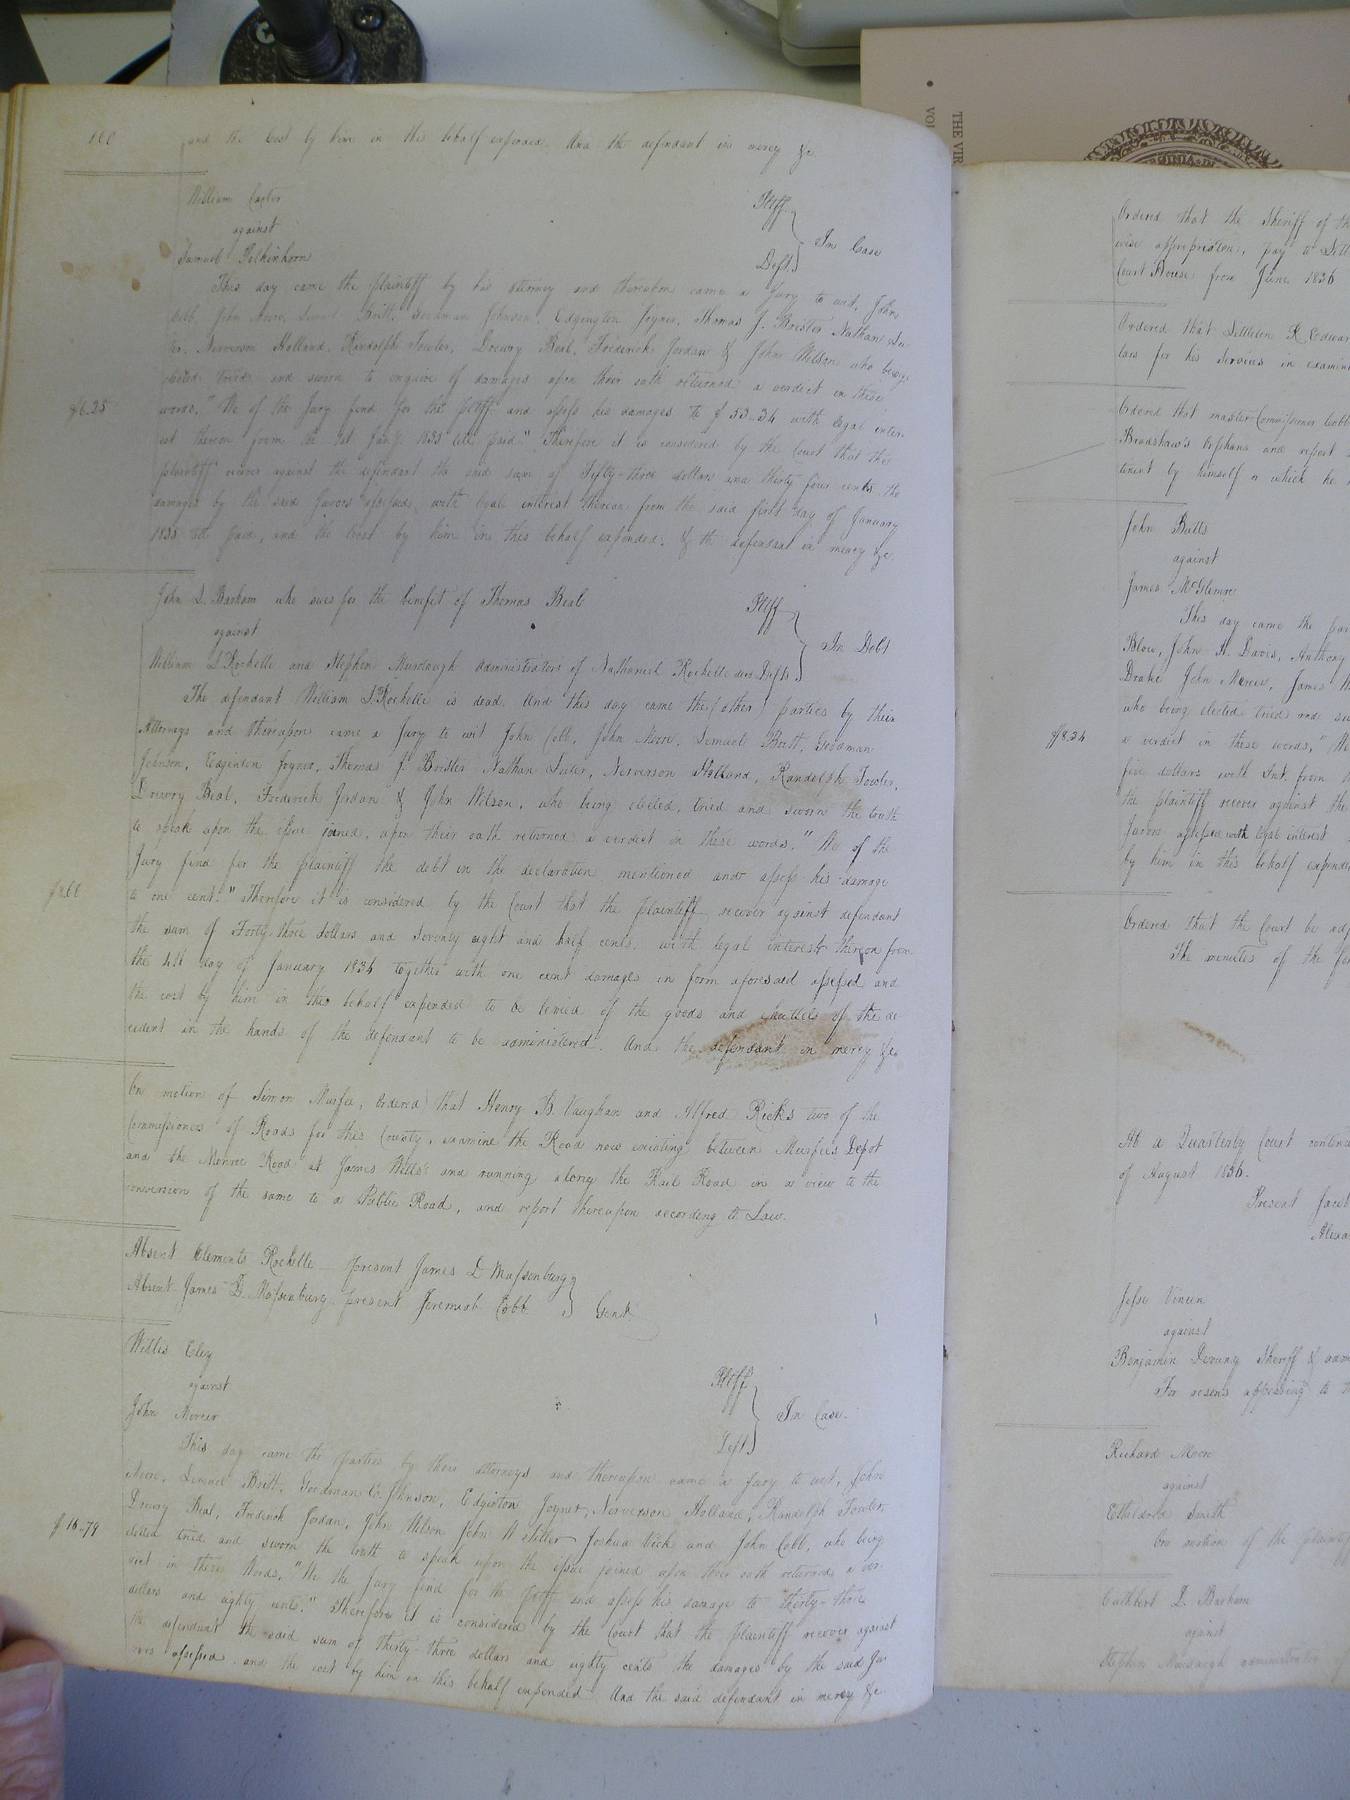 and the Cost by him in this behalf expended. And the defendant in mercy &c.
William Carter Pltff.
against In Case
Samuel Deft.
This day came the plaintiff by his attorney and thereupon came a Jury to wit, John
Cobb, John Moore, Lemuel Britt, Goodman Johnson, Edgington Joyner, Thomas J. Brister Nathan
Nerverson Holland, Randolph Fowler, Drewry Beal, Frederick Jordan & John Wilson who being
elected tried and sworn to enquire of damages upon their oath returned a verdict in these
$6.25
words, "We of the Jury find for the pltff and assess his damages to $53-34 with legal inter-
est thereon from the 1st Jany. 1835 till paid." Therefore it is considered by the Court that the
plaintiff recover against the defendant the said sum of Fifty-three dollars and thirty four cents the
damages by the said Jurors assessed, with legal interest thereon from the said first day of January
1835 till paid, and the Cost by him in this behalf expended. & the defendant in mercy &c.
John L. Barham who sues for the benefit of Thomas Beal Pltff
against In Debt
William L Rochelle and Stephen Murdaugh administrators of Nathaniel Rochelle decd Defts.
The defendant William L Rochelle is dead. And this day came the (other) parties by their
Attorneys and thereupon came a Jury to wit John Cobb, John Moore, Lemuel Britt, Goodman
Johnson, Edgenton Joyner, Thomas J. Brister Nathan, Nerverson Holland, Randolph Fowler,
Drewry Beal, Frederick Jordan & John Wilson, who being elected, tried and sworn the truth
to speak upon the issue joined, upon their oath returned a verdict in these words, "We of the
Jury find for the plaintiff the debt in the declaration mentioned and assess his damage
to one cent." Therefore it is considered by the Court that the plaintiff recover against defendant
the sum of Forty three dollars and Seventy eight and half cents, with legal interest thereon from
the day of January 1834 together with one cent damages in form aforesaid assessed and
the cost by him in this behalf expended to be levied of the goods and chattels of the de
cedent in the hands of the defendant to be administered. And the defendant in mercy &c
On motion of Simon Murfee, Ordered that Henry B. Vaughan and Alfred Ricks two of the
Commissioners of Roads for this County, examine the Road now existing between Murfee's Depot
and the Monroe Road at James Wills's and running along the Rail Road in a view to the
conversion of the same to a Public Road, and report thereupon according to Law.
Absent Clements Rochelle present James D Massenburg
Absent James D. Massenburg present Jeremiah Cobb Gent
Willis Eley Pltff
against In Case.
John Mercer Deft
This day came the parties by their attorneys and thereupon came a Jury to wit, John
Moore, Lemuel Britt, Goodman Johnson, Edginton Joyner, Nerverson Holland, Randolph Fowler,
Drewry Beal, Frederick Jordan, John Wilson John Joshua Vick and John Cobb, who being
$16-79
elected tried and sworn the truth to speak upon the issue joined upon their oath returned a ver-
dict in these Words, "We the Jury find for the pltff and assess his damage to thirty-three
dollars and eighty cents." Therefore it is considered by the Court that the plaintiff recover against
the defendant the said sum of Thirty-three dollars and eighty cents the damages by the said Ju
rors assessed and the cost by him in this behalf expended And the said defendant in mercy &c
THE VIR
Ordered that the Sheriff of
pay to
Court House from June 1836
Ordered that Littleton R Edwar
for his Services in
Ordered that master Commissioner Cobb
Bradshaw's Orphans and report
by himself or which he
John Butts
against
James
This day came the
Blow, John Davis, Anthony
Drake John Mercer, James
who being elected tried and
$8.34
a verdict in these words, "We
five dollars with Int. from
the plaintiff recover against the
Jurors assessed with legal interest
by him in this behalf expende
Ordered that the Court be
The minutes of the
At a Quarterly Court
of August 1836.
Present Jacob
Jesse Vincen
against
Benjamin Devany Sheriff &
For reasons appearing to
Richard Moore
against
Etheldred Smith
On motion of the plaintiff
Cuthbert D. Barham
against
Stephen Murdaugh administrator